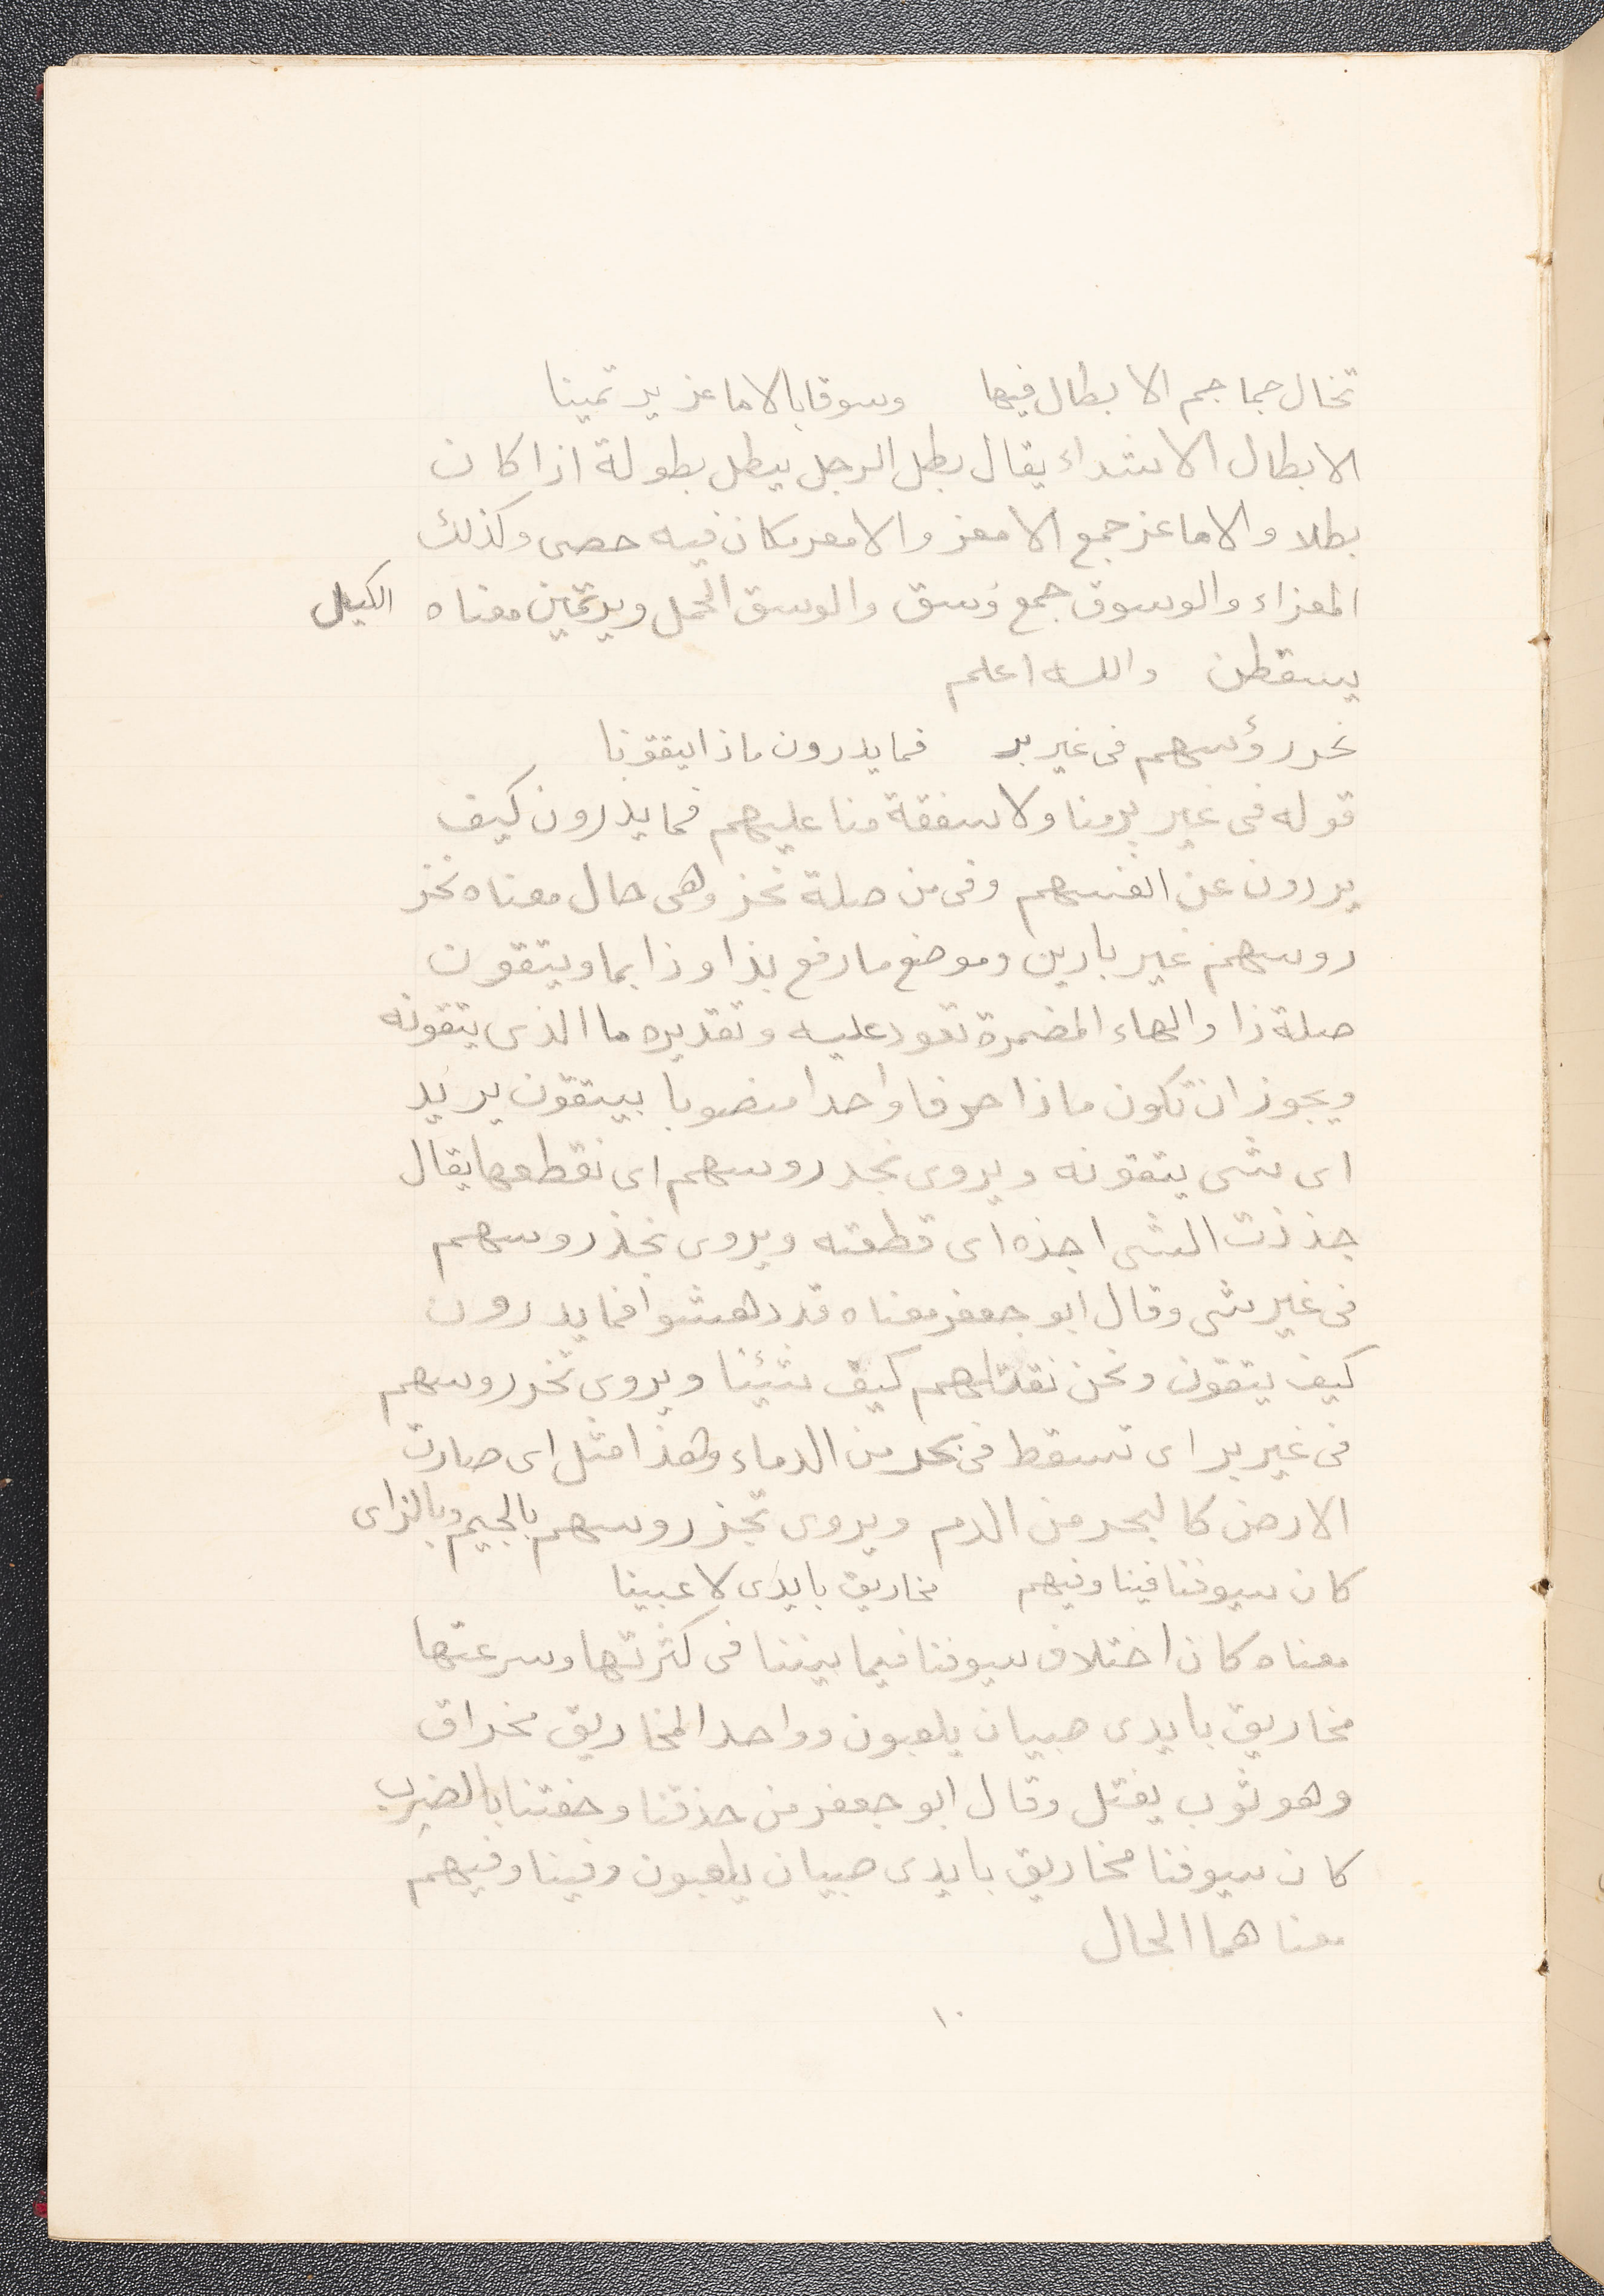 تخال جماجم الابطال فيها وسوقا بالاماعز يرتمينا
الابطال الاشداء يقال بطل الرجل يبطل بطولة اذا كان
بطلا والاماعز جمع الامعز والامعز مكان فيه حصى وكذلك
المعزاء والوسوق جمع وسق والوسق الحمل ويرتمين معناه الكيل
يسقطن والله اعلم
نحدر رؤسهم فى غير بر فما يدرون ماذا يتقونا
قوله فى غير بر منا ولا شفقة منا عليهم فما يدرون كيف
يردون عن انفسهم وفى من صلة نحز وهى حال معناه نحز
روسهم غير بارين وموضع ما رفع بذا وذا بما ويتقون
صلة ذا والهاء المضمرة تعود عليه وتقديره ما الذى يتقونه
ويجوز ان تكون ماذا حرفا واحدا منصوبا بيتقون يريد
اى شى يتقونه ويروى نجد روسهم اى نقطعها يقال
جذذت الشى اجذه اى قطعته ويروى نجذ روسهم
فى غير شى وقال ابو جعفر معناه قد دهشوا فما يدرون
كيف يتقون ونحن نقتلهم كيف شئنا ويروى تخر روسهم
فى غير بر اى تسقط فى بحر من الدماء وهذا مثل اى صارت
الارض كالبحر من الدم ويروى تجز روسهم بالجيم وبالزاى
كان سيوفنا فينا وفيهم مخاريق بايدى لاعبينا
معناه كان اختلاف سيوفنا فيما بيننا فى كثرتها وسرعتها
مخاريق بايدى صبيان يلعبون وواحد المخاريق مخراق
وهو ثوب يفتل وقال ابو جعفر من حذقنا وخفتنا بالضرب
كان سيوفنا مخاريق بايدى صبيان يلعبون وفينا وفيهم
معناهما الحال
١٠